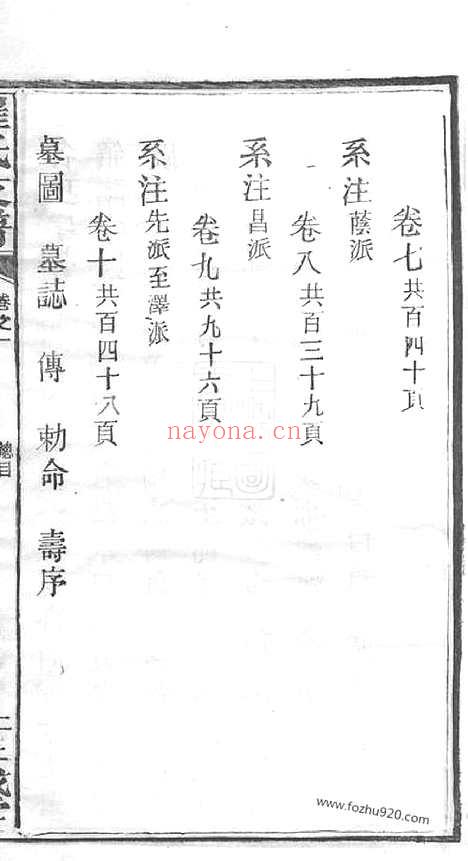 卷七共百四十頁
系注蔭派
卷八共百三十九頁
系注昌派
卷九共九十六頁
系注先派至澤派
卷十共百四十八頁
墓圖 墓誌 傳 勅命 壽序
卷之一
總目
nayona.cn
www.fozhu920.com